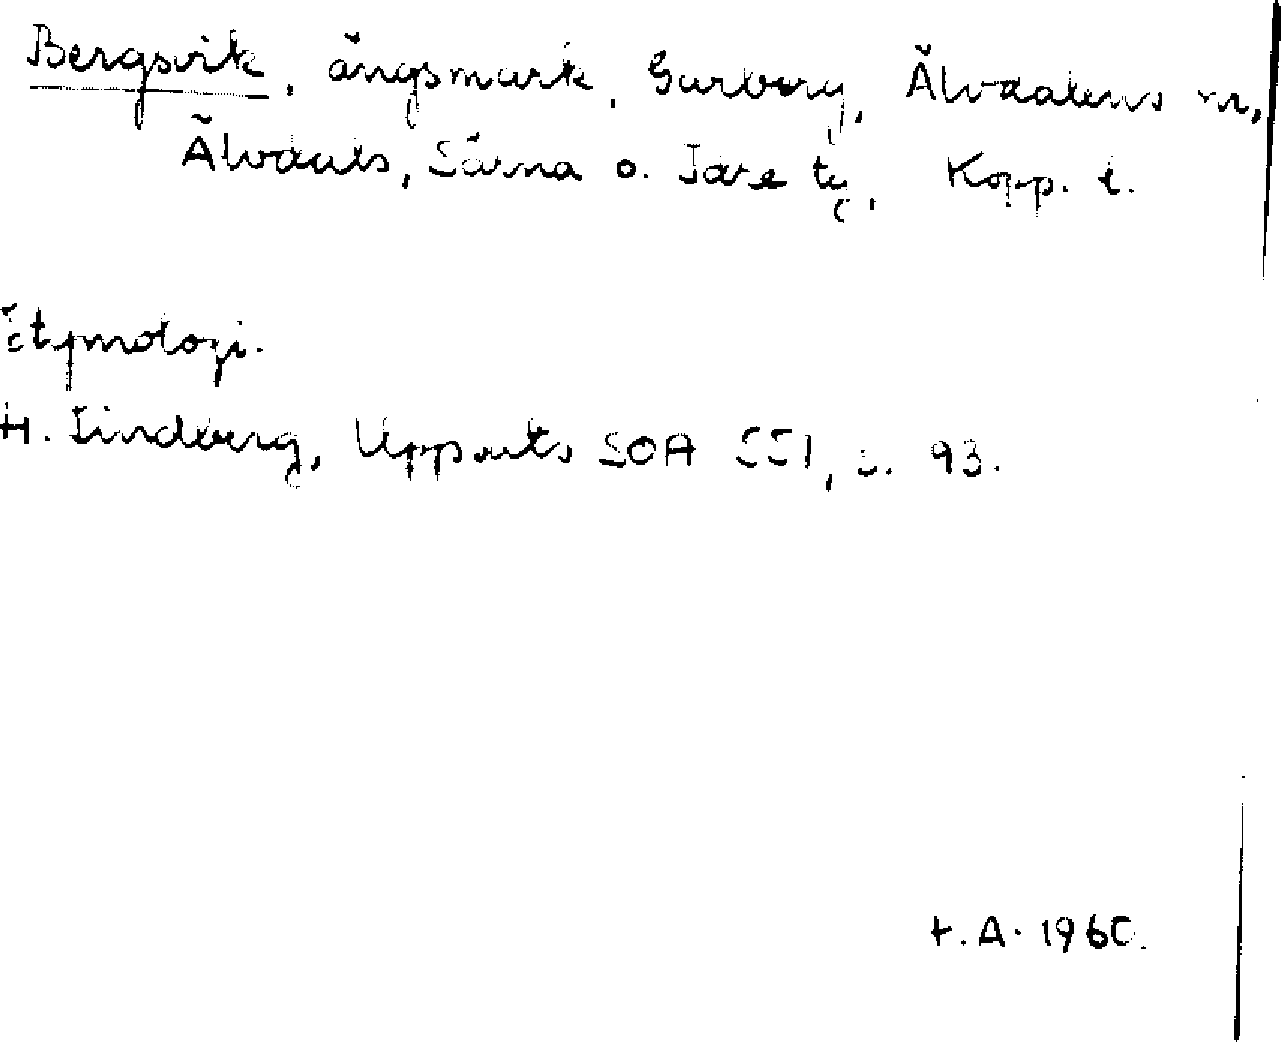 Bergsvik, ängsmark, Garberg, Älvdalens sn,
Älvdals, Särna o. Idre tg, Kopp. l.
Etymologi.
H. Lindberg, Uppsats SOA 551, s. 93.
H. A. 1960.